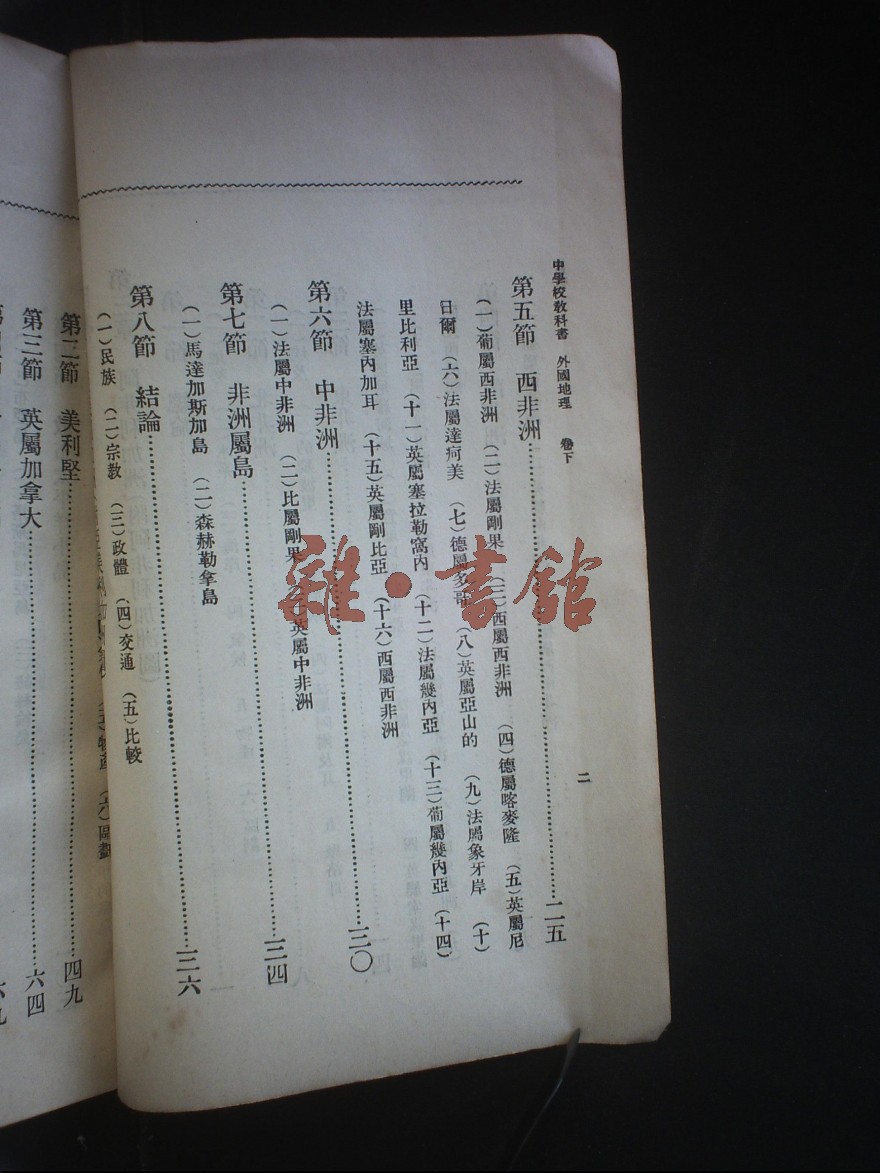 中學校敎科書　外國地理　卷下
二
第五節　西非洲…二五
（一）葡屬西非洲　（二）法屬剛果　（三）西屬西非洲　（四）德屬喀麥隆　（五）英屬尼
日爾　（六）法屬達疴美　（七）德屬多哥　（八）英屬亞山的　（九）法屬象牙岸　（十）
里比利亞　（十一）英屬塞拉勒窩內　（十二）法屬幾內亞　（十三）葡屬幾內亞　（十四）
法屬塞內加耳　（十五）英屬剛比亞　（十六）西屬西非洲
第六節　中非洲…三〇
（一）法屬中非洲　（二）比屬剛果　（三）英屬中非洲
第七節　非洲屬島…三四
（一）馬達加斯加島　（二）森赫勒拿島
第八節　結論…三六
（一）民族　（二）宗教　（三）政體　（四）交通　（五）比較
（五）物產　（六）區畫
第二節　美利堅…四九
第三節　英屬加拿大…六四
雜·書館